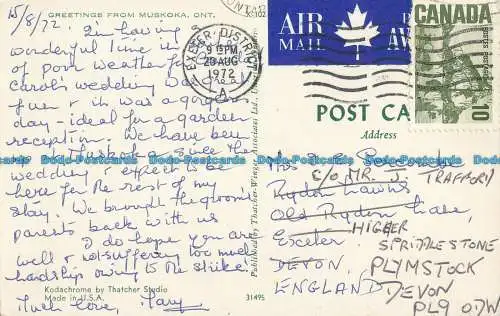 GREETINGS FROM MUSKOKA, ONT.
15/8/72 I'm having
wonderful time in
of poor weather
Carol's wedding was
fun & it was a gorgeous
day - ideal for a garden
reception. We have been
Muskoka since the
wedding & expect to be
here for the rest of my
stay. We brought the groom's
parents back with us
I do hope you are
well & not suffering too much
hardship owing to the strike.
Much love, Mary
Kodachrome by Thatcher Studio
Made in U.S.A.
31495
EXETER DISTRICT
9 15PM
20 AUG
1972
A
AIR
MAIL
CANADA
POSTES POSTAGE
10
POST CA
Address
C/O MR. J. TRAFFORD
Rydon Lawns
Old Rydon Lane,
Exeter
HIGHER
SPRIDDLESTONE
DEVON,
PLYMSTOCK
ENGLAND
DEVON
PL9 0DW
Dodo-Postcards